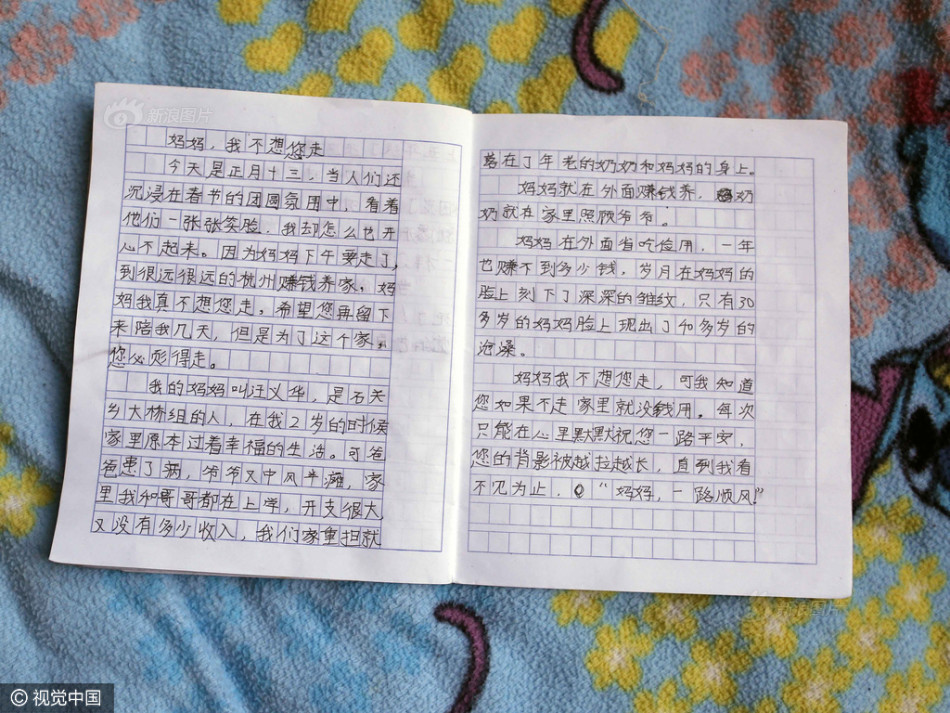 新浪图片
妈妈，我不想您走
今天是正月十三，当人们还
沉浸在春节的团圆氛围中，看着
他们一张张笑脸，我却怎么也开
心不起来。因为妈妈下午要走了，
到很远很远的杭州赚钱养家，妈
妈我真不想您走。希望您再留下
来陪我几天，但是为了这个家，
您必须得走。
我的妈妈叫汪义华，是石关
乡大桥组的人，在我2岁的时候
家里原本过着幸福的生活。可爸
爸患了病，爷爷又中风半瘫，家
里我和哥哥都在上学，开支很大，
又没有多少收入，我们家重担就
落在了年老的奶奶和妈妈的身上。
妈妈就在外面赚钱养，奶
奶就在家里照顾爷爷。
妈妈在外面省吃俭用，一年
也赚不到多少钱，岁月在妈妈的
脸上刻下了深深的皱纹，只有30
多岁的妈妈脸上现出了40多岁的
沧桑。
妈妈我不想您走，可我知道
您如果不走家里就没钱用。每次
只能在心里默默祝您一路平安，
您的背影被越拉越长，直到我看
不见为止，“妈妈，一路顺风”
© 视觉中国